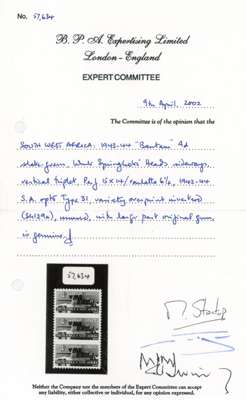 No. 57,634
B. P. A. Expertising Limited
London - England
EXPERT COMMITTEE
9th April, 2002
The Committee is of the opinion that the
SOUTH WEST AFRICA: 1943-44 "Bantam" 4d
slate-green, Wmk Springboks' Heads sideways,
vertical triplet, Perf 15 x 14/roulette 6½, 1943-44
S.A. opts Type 31, variety overprint inverted
(SG129a), unused, with large part original gum,
is genuine.
57,634
Neither the Company nor the members of the Expert Committee can accept
any liability, either collective or individual, for any opinion expressed.